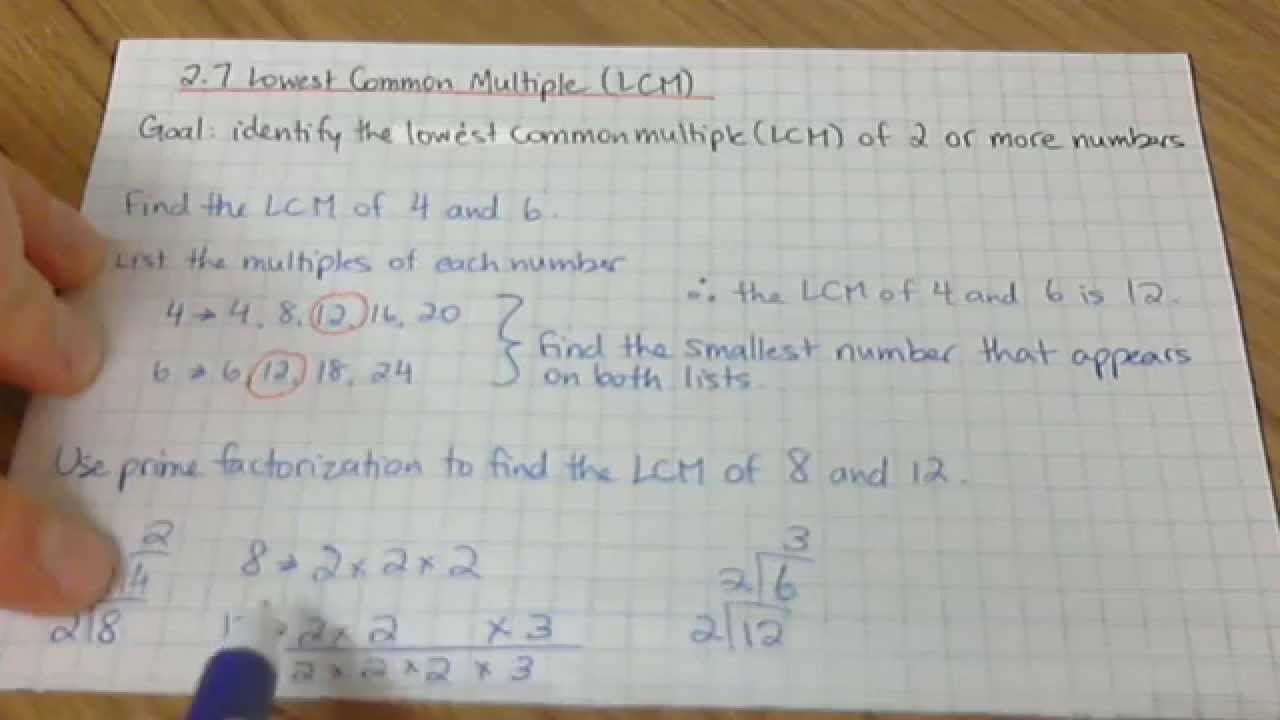 2.7 Lowest Common Multiple (LCM)
Goal: identify the lowest common multiple (LCM) of 2 or more numbers
Find the LCM of 4 and 6.
List the multiples of each number
∴ the LCM of 4 and 6 is 12.
4 → 4, 8, 12, 16, 20
6 → 6, 12, 18, 24
} Find the smallest number that appears
on both lists.
Use prime factorization to find the LCM of 8 and 12.
2
4
2 8
8 → 2 × 2 × 2
2 × 2 × 3
2 × 2 × 2 × 3
3
2 6
2 12